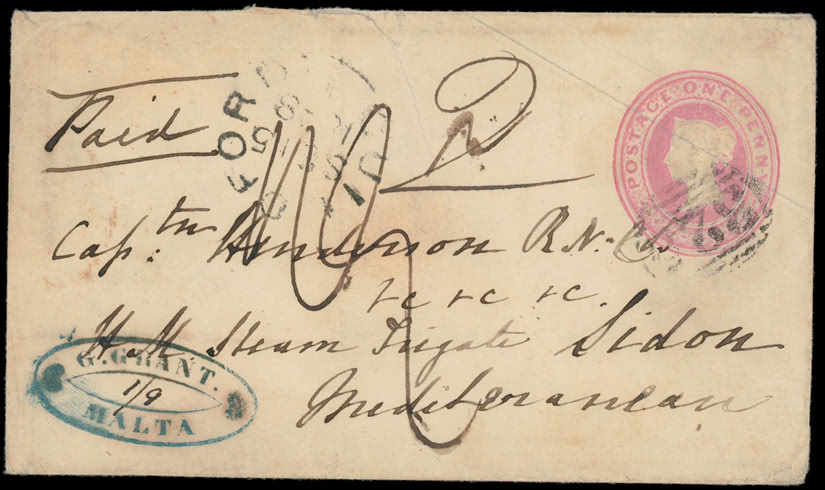 Paid
POSTAGE ONE PENNY
Cap:tn Henderson R.N. C.B.
&c &c &c.
H M Steam Frigate Sidon
Mediterranean
G. GRANT.
1/9
MALTA